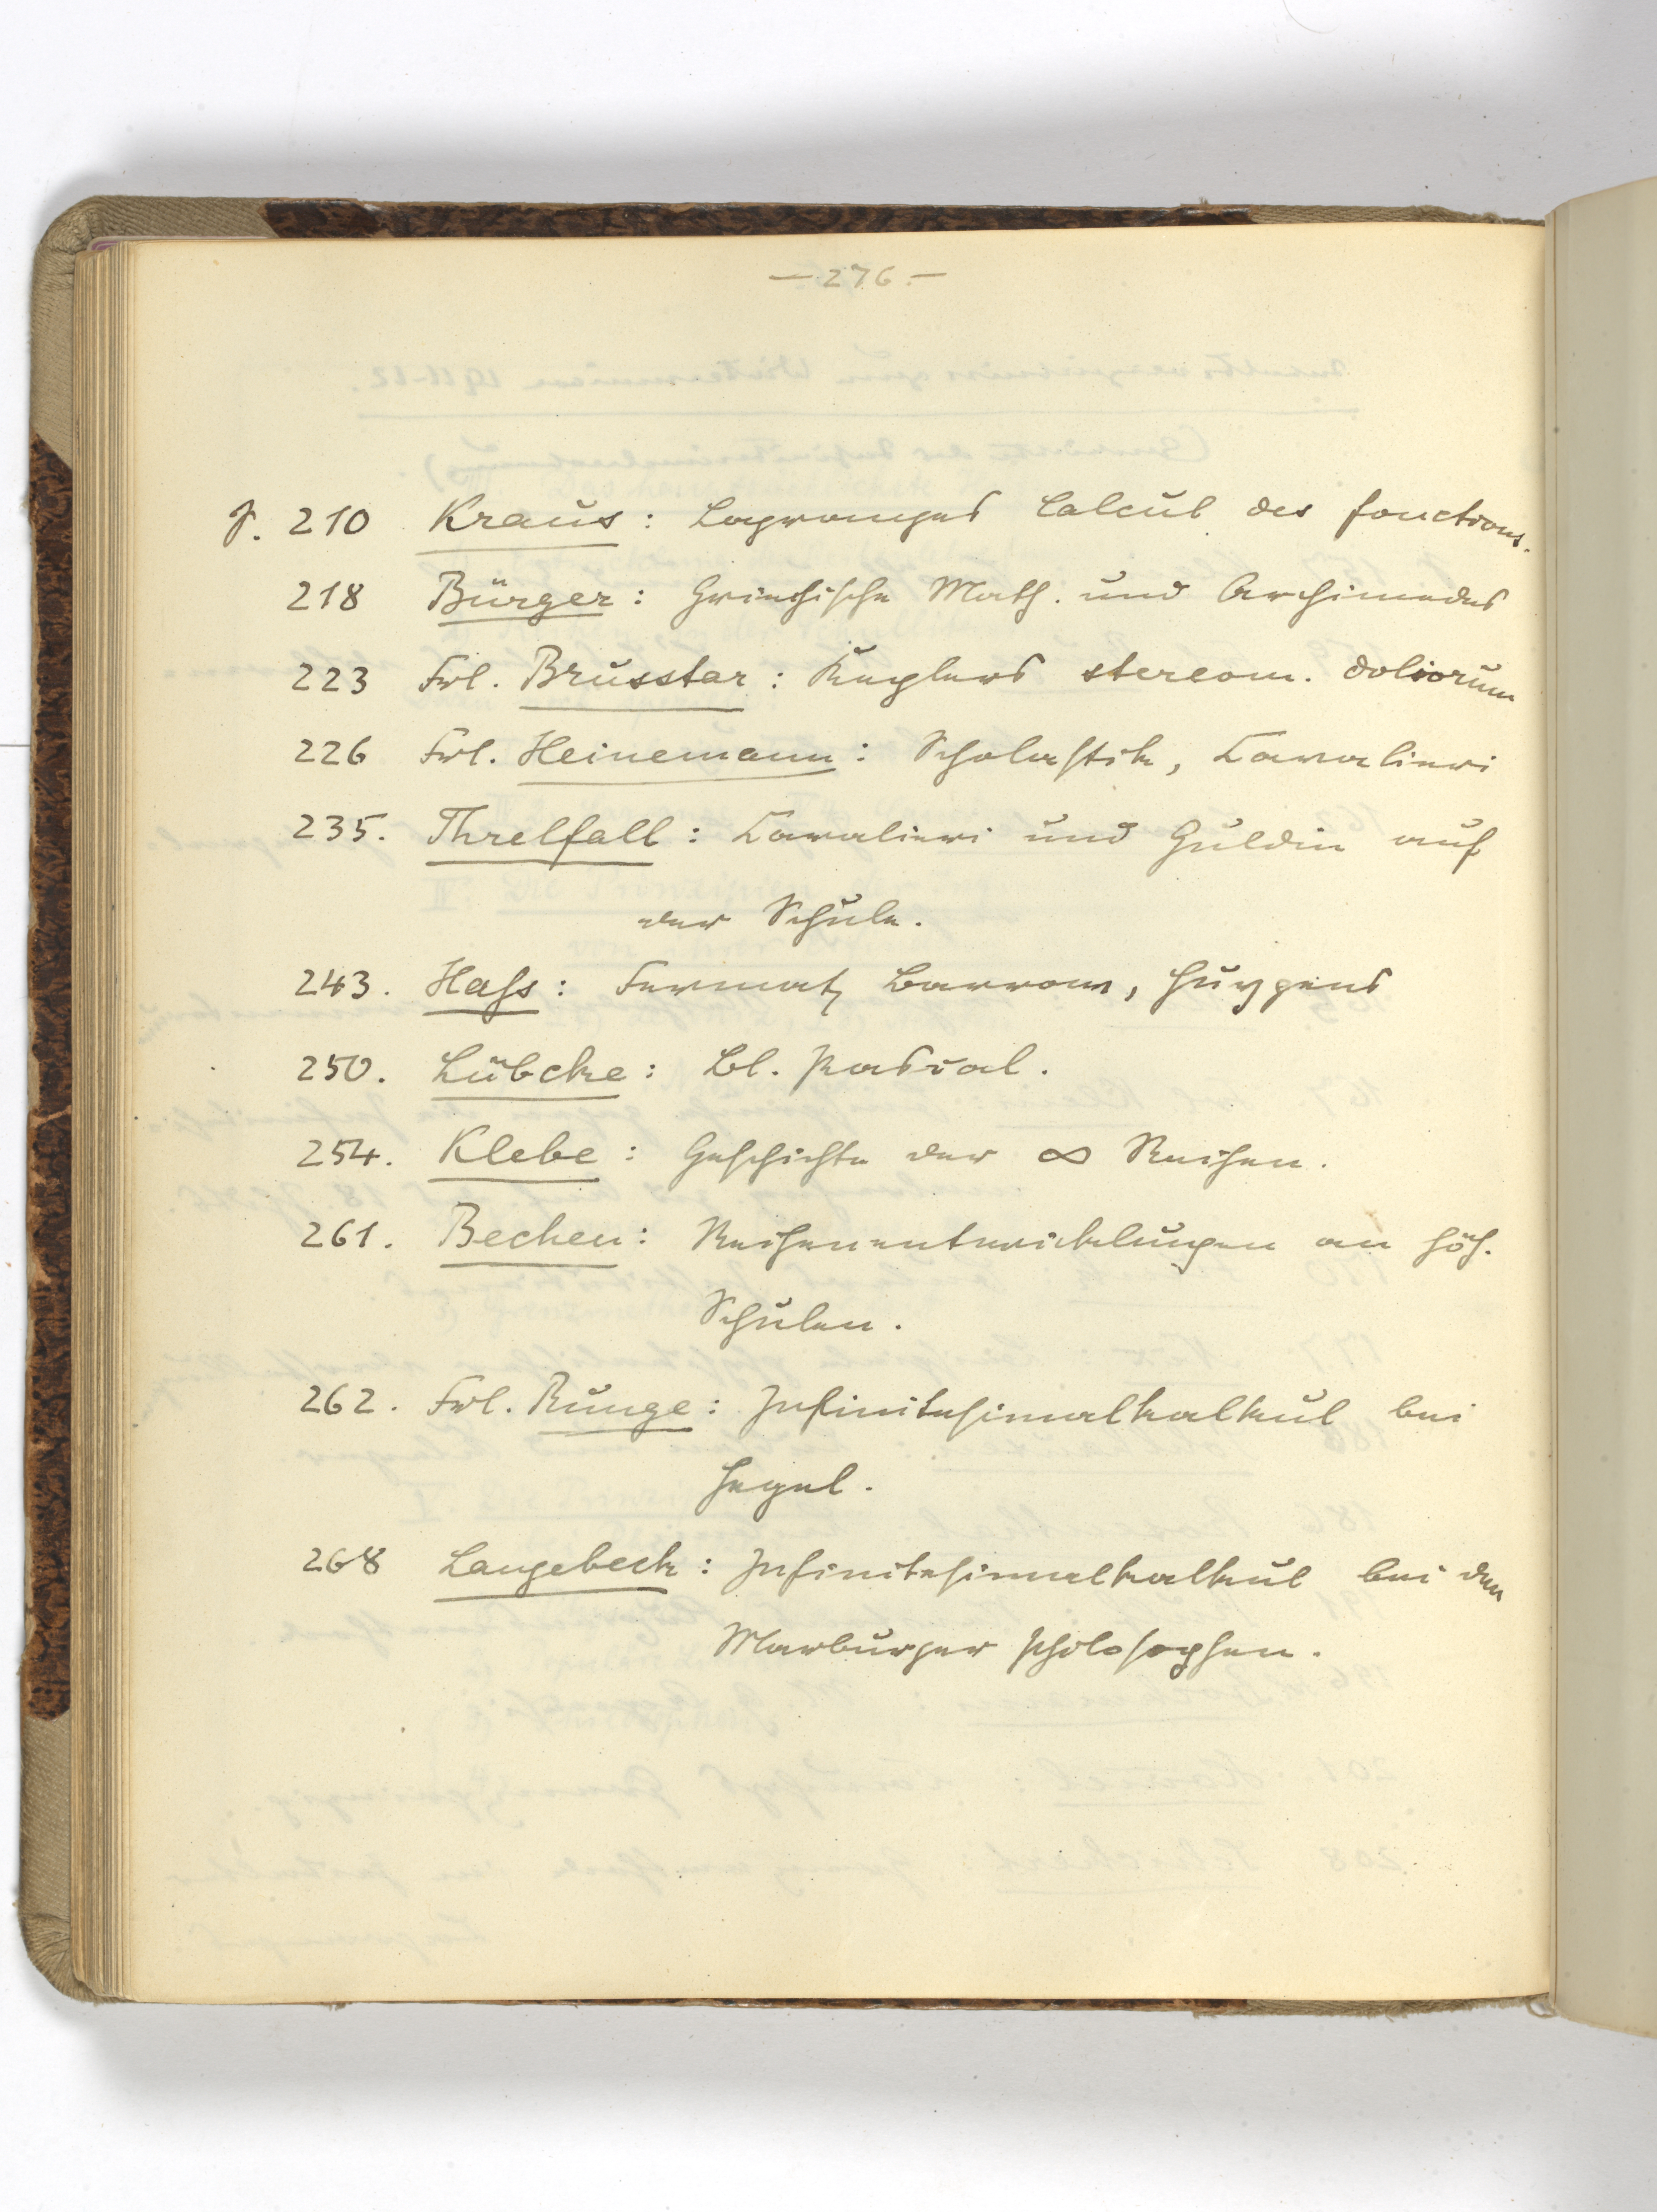 — 276 —
p. 210 Kraus: Lagranges Calcul des fonctions.
218 Bürger: Griechische Math. und Archimedes
223 Frl. Brusstar: Keplers stereom. doliorum
226 Frl. Heinemann: Scholastik, Cavalieri
235. Threlfall: Cavalieri und Guldin auf
der Schule.
243. Hass: Fermat, Barrow, Huygens
250. Lübcke: Bl. Pascal.
254. Klebe: Geschichte der ∞ Reihen.
261. Becken: Reihenentwickelungen an höh.
Schulen.
262. Frl. Runge: Infinitesimalkalkul bei
Hegel.
268 Langebeck: Infinitesimalkalkul bei den
Marburger Philosophen.